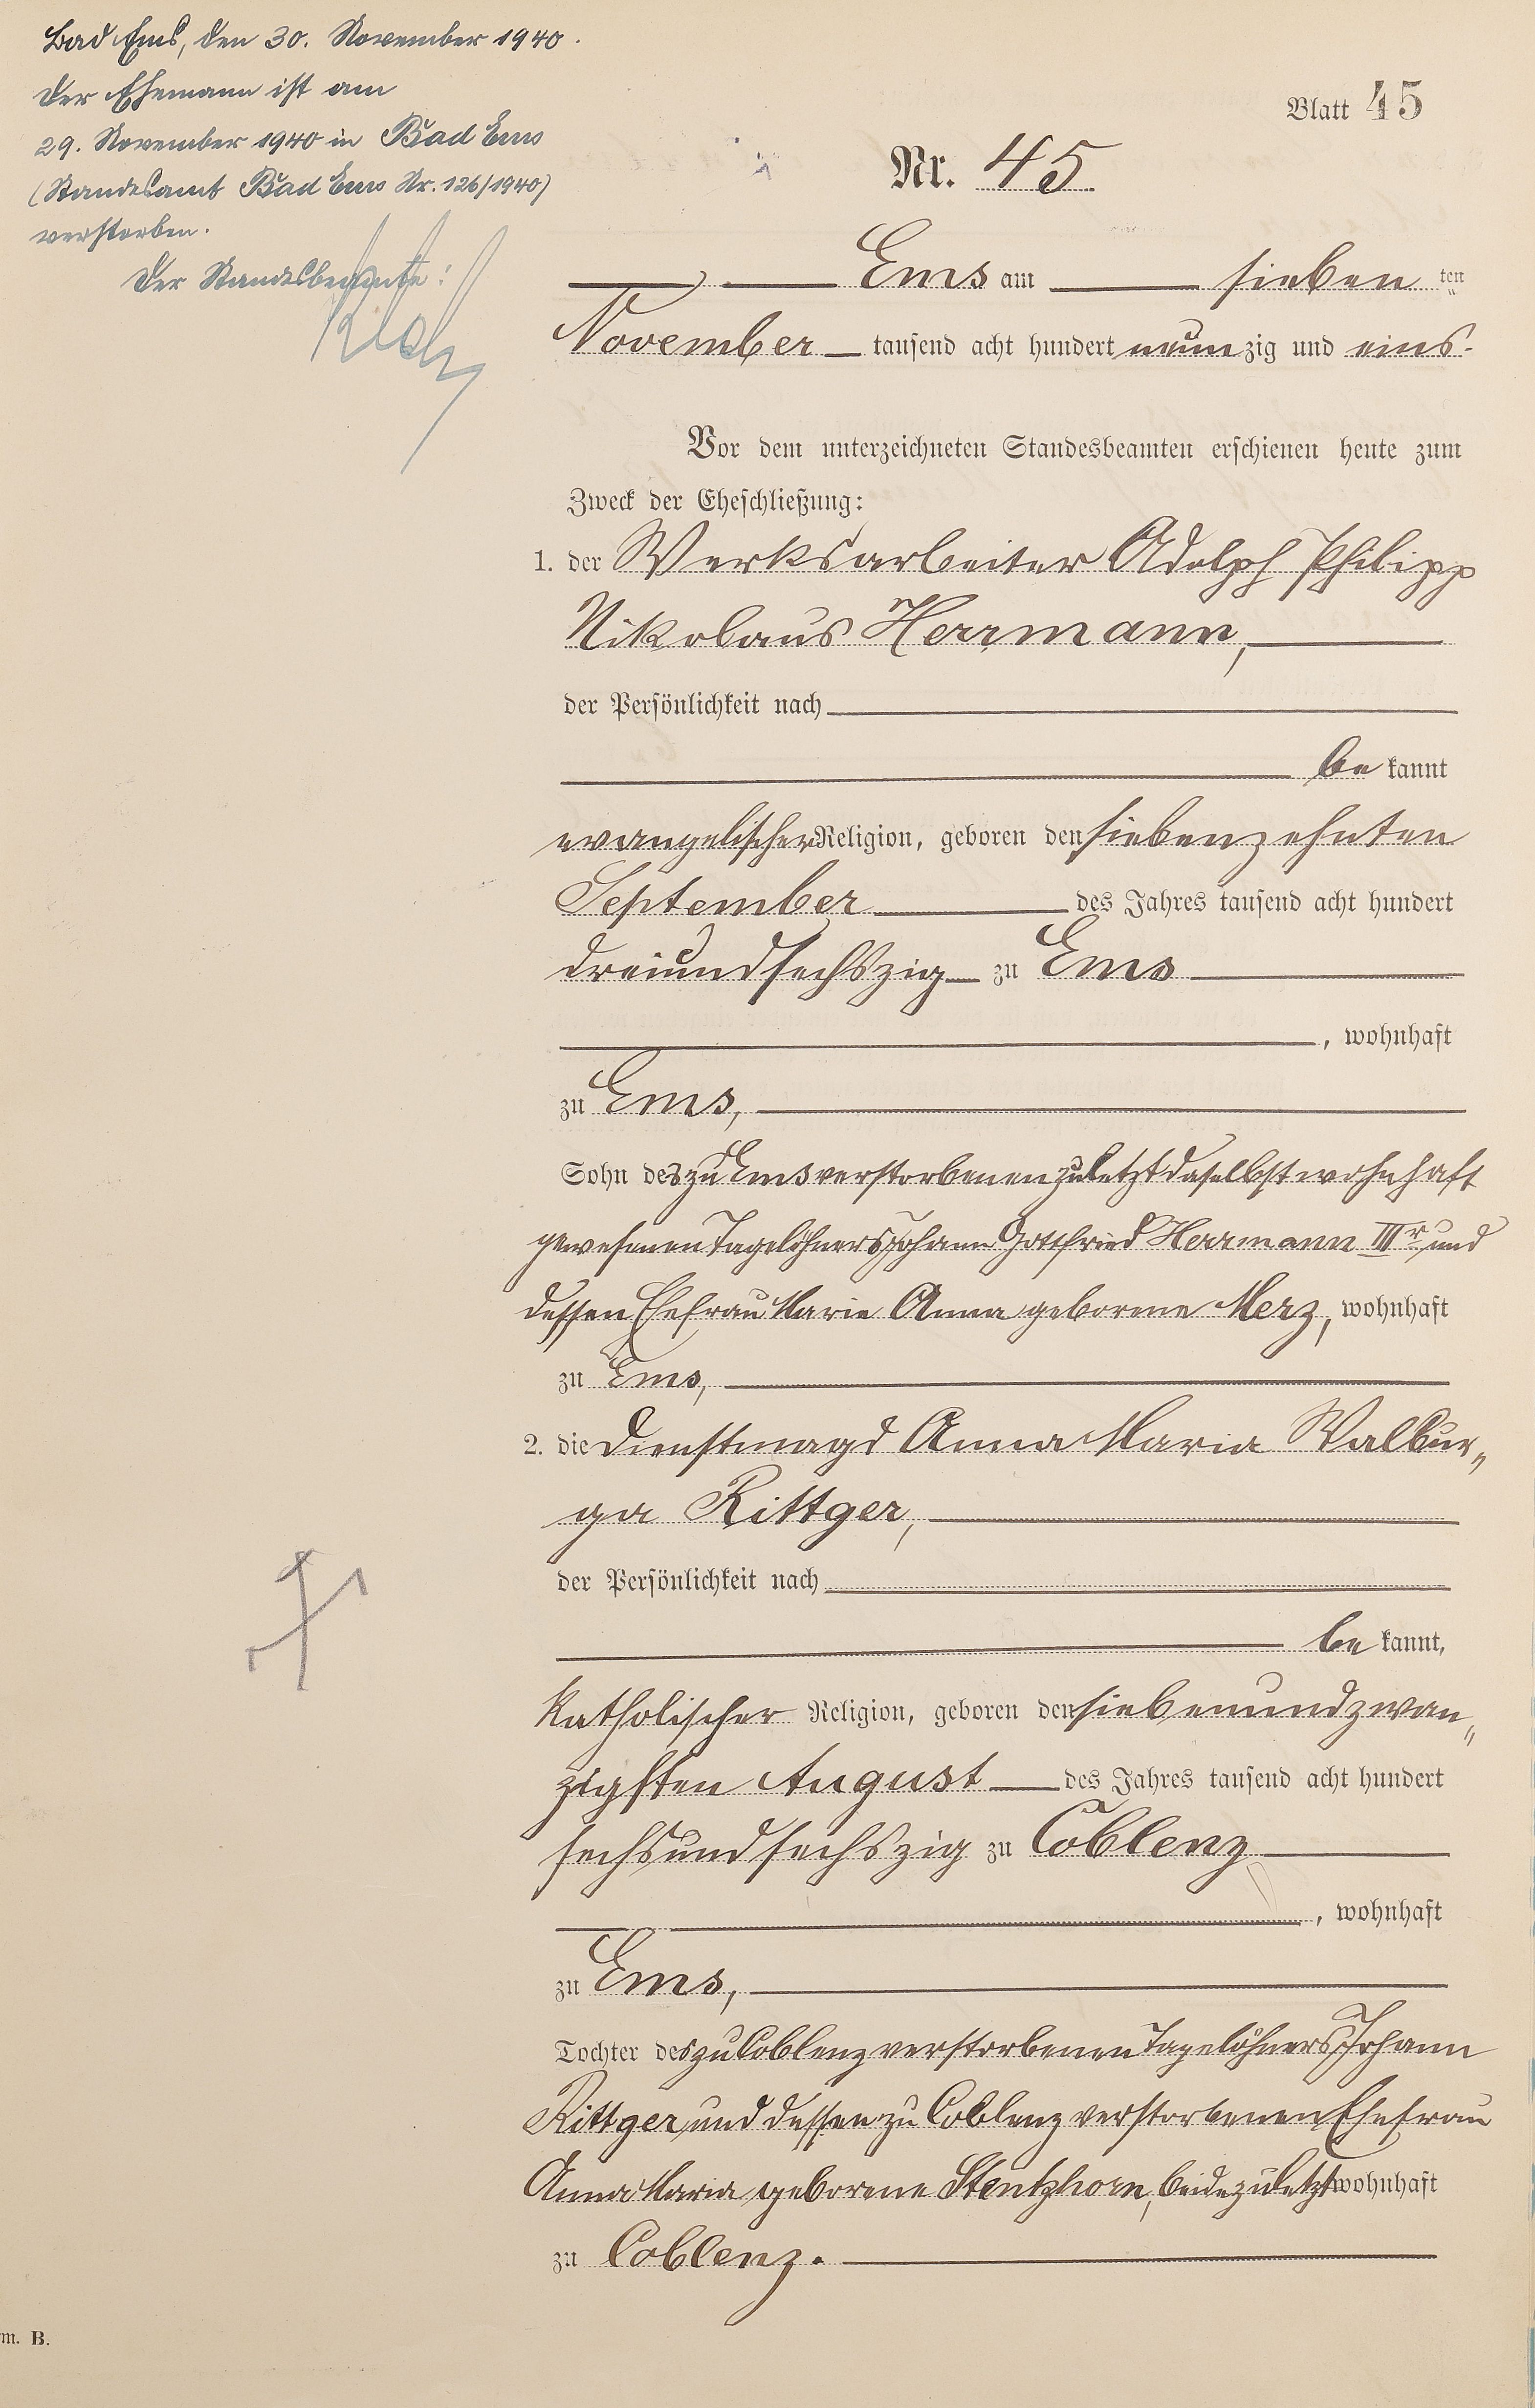 Bad Ems, den 30. November 1940.
Der Ehemann ist am
29. November 1940 in Bad Ems
(Standesamt Bad Ems Nr. 126/1940)
verstorben.
Der Standesbeamte:
Blatt 45
Nr. 45.
Ems am sieben ten
November tausend acht hundert neunzig und eins.
Vor dem unterzeichneten Standesbeamten erschienen heute zum
Zweck der Eheschließung:
1. der Werksarbeiter Adolph Philipp
Nikolaus Herrmann,
der Persönlichkeit nach
be kannt
evangelischer Religion, geboren den siebenzehnten
September des Jahres tausend acht hundert
dreiundsechszig zu Ems
, wohnhaft
zu Ems,
Sohn des zu Ems verstorbenen zuletzt daselbst wohnhaft
gewesenen Tagelöhners Johann Gottfried Herrmann IIIr und
dessen Ehefrau Marie Anna geborene Merz, wohnhaft
zu Ems,
2. die Dienstmagd Anna Maria Walbur„
ga Rittger,
der Persönlichkeit nach
be kannt,
katholischer Religion, geboren den siebenundzwan„
zigsten August des Jahres tausend acht hundert
sechsundsechszig zu Coblenz
, wohnhaft
zu Ems,
Tochter des zu Coblenz verstorbenen Tagelöhners Johann
Rittger und dessen zu Coblenz verstorbenen Ehefrau
Anna Maria geborene Stentzhorn, beide zuletzt wohnhaft
zu Coblenz.
m. B.